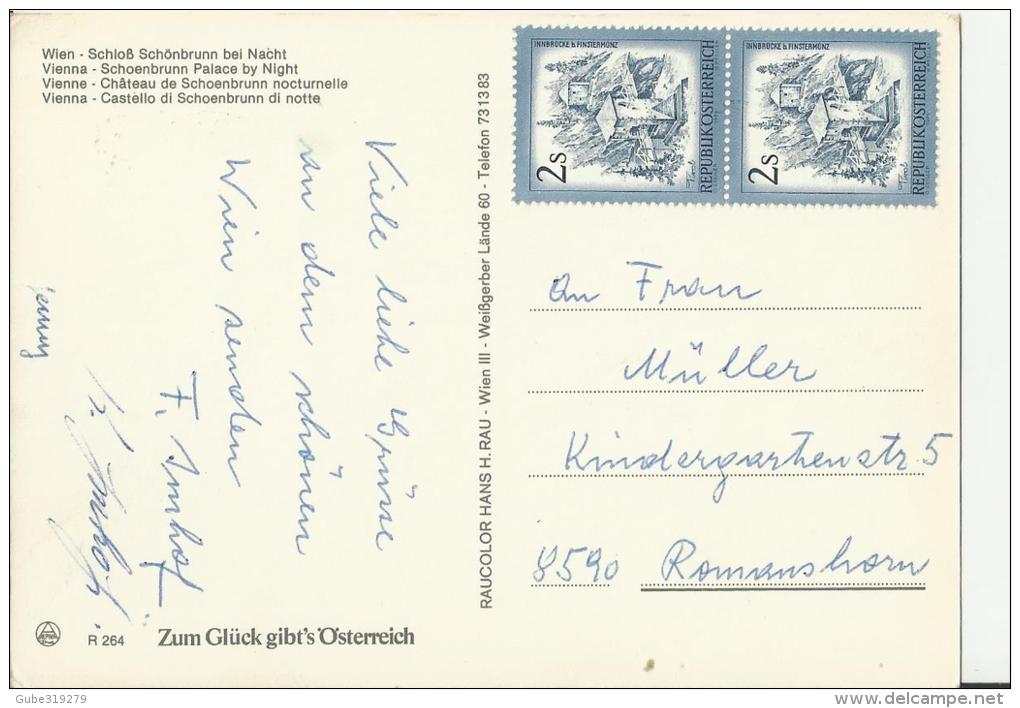 Wien - Schloß Schönbrunn bei Nacht
Vienna - Schoenbrunn Palace by Night
Vienne - Château de Schoenbrunn nocturnelle
Vienna - Castello di Schoenbrunn di notte
Viele liebe Grüsse
aus dem schönen
Wien senden
F. Imhof
RAUCOLOR HANS H. RAU - Wien III - Weißgerber Lände 60 - Telefon 731383
INNBRÜCKE b. FINSTERMÜNZ
2s
REPUBLIK ÖSTERREICH
INNBRÜCKE b. FINSTERMÜNZ
2s
REPUBLIK ÖSTERREICH
An Frau
Müller
Kindergartenstr. 5
8590 Romanshorn
R 264
Zum Glück gibt's Österreich
Gube319279
www.delcampe.net